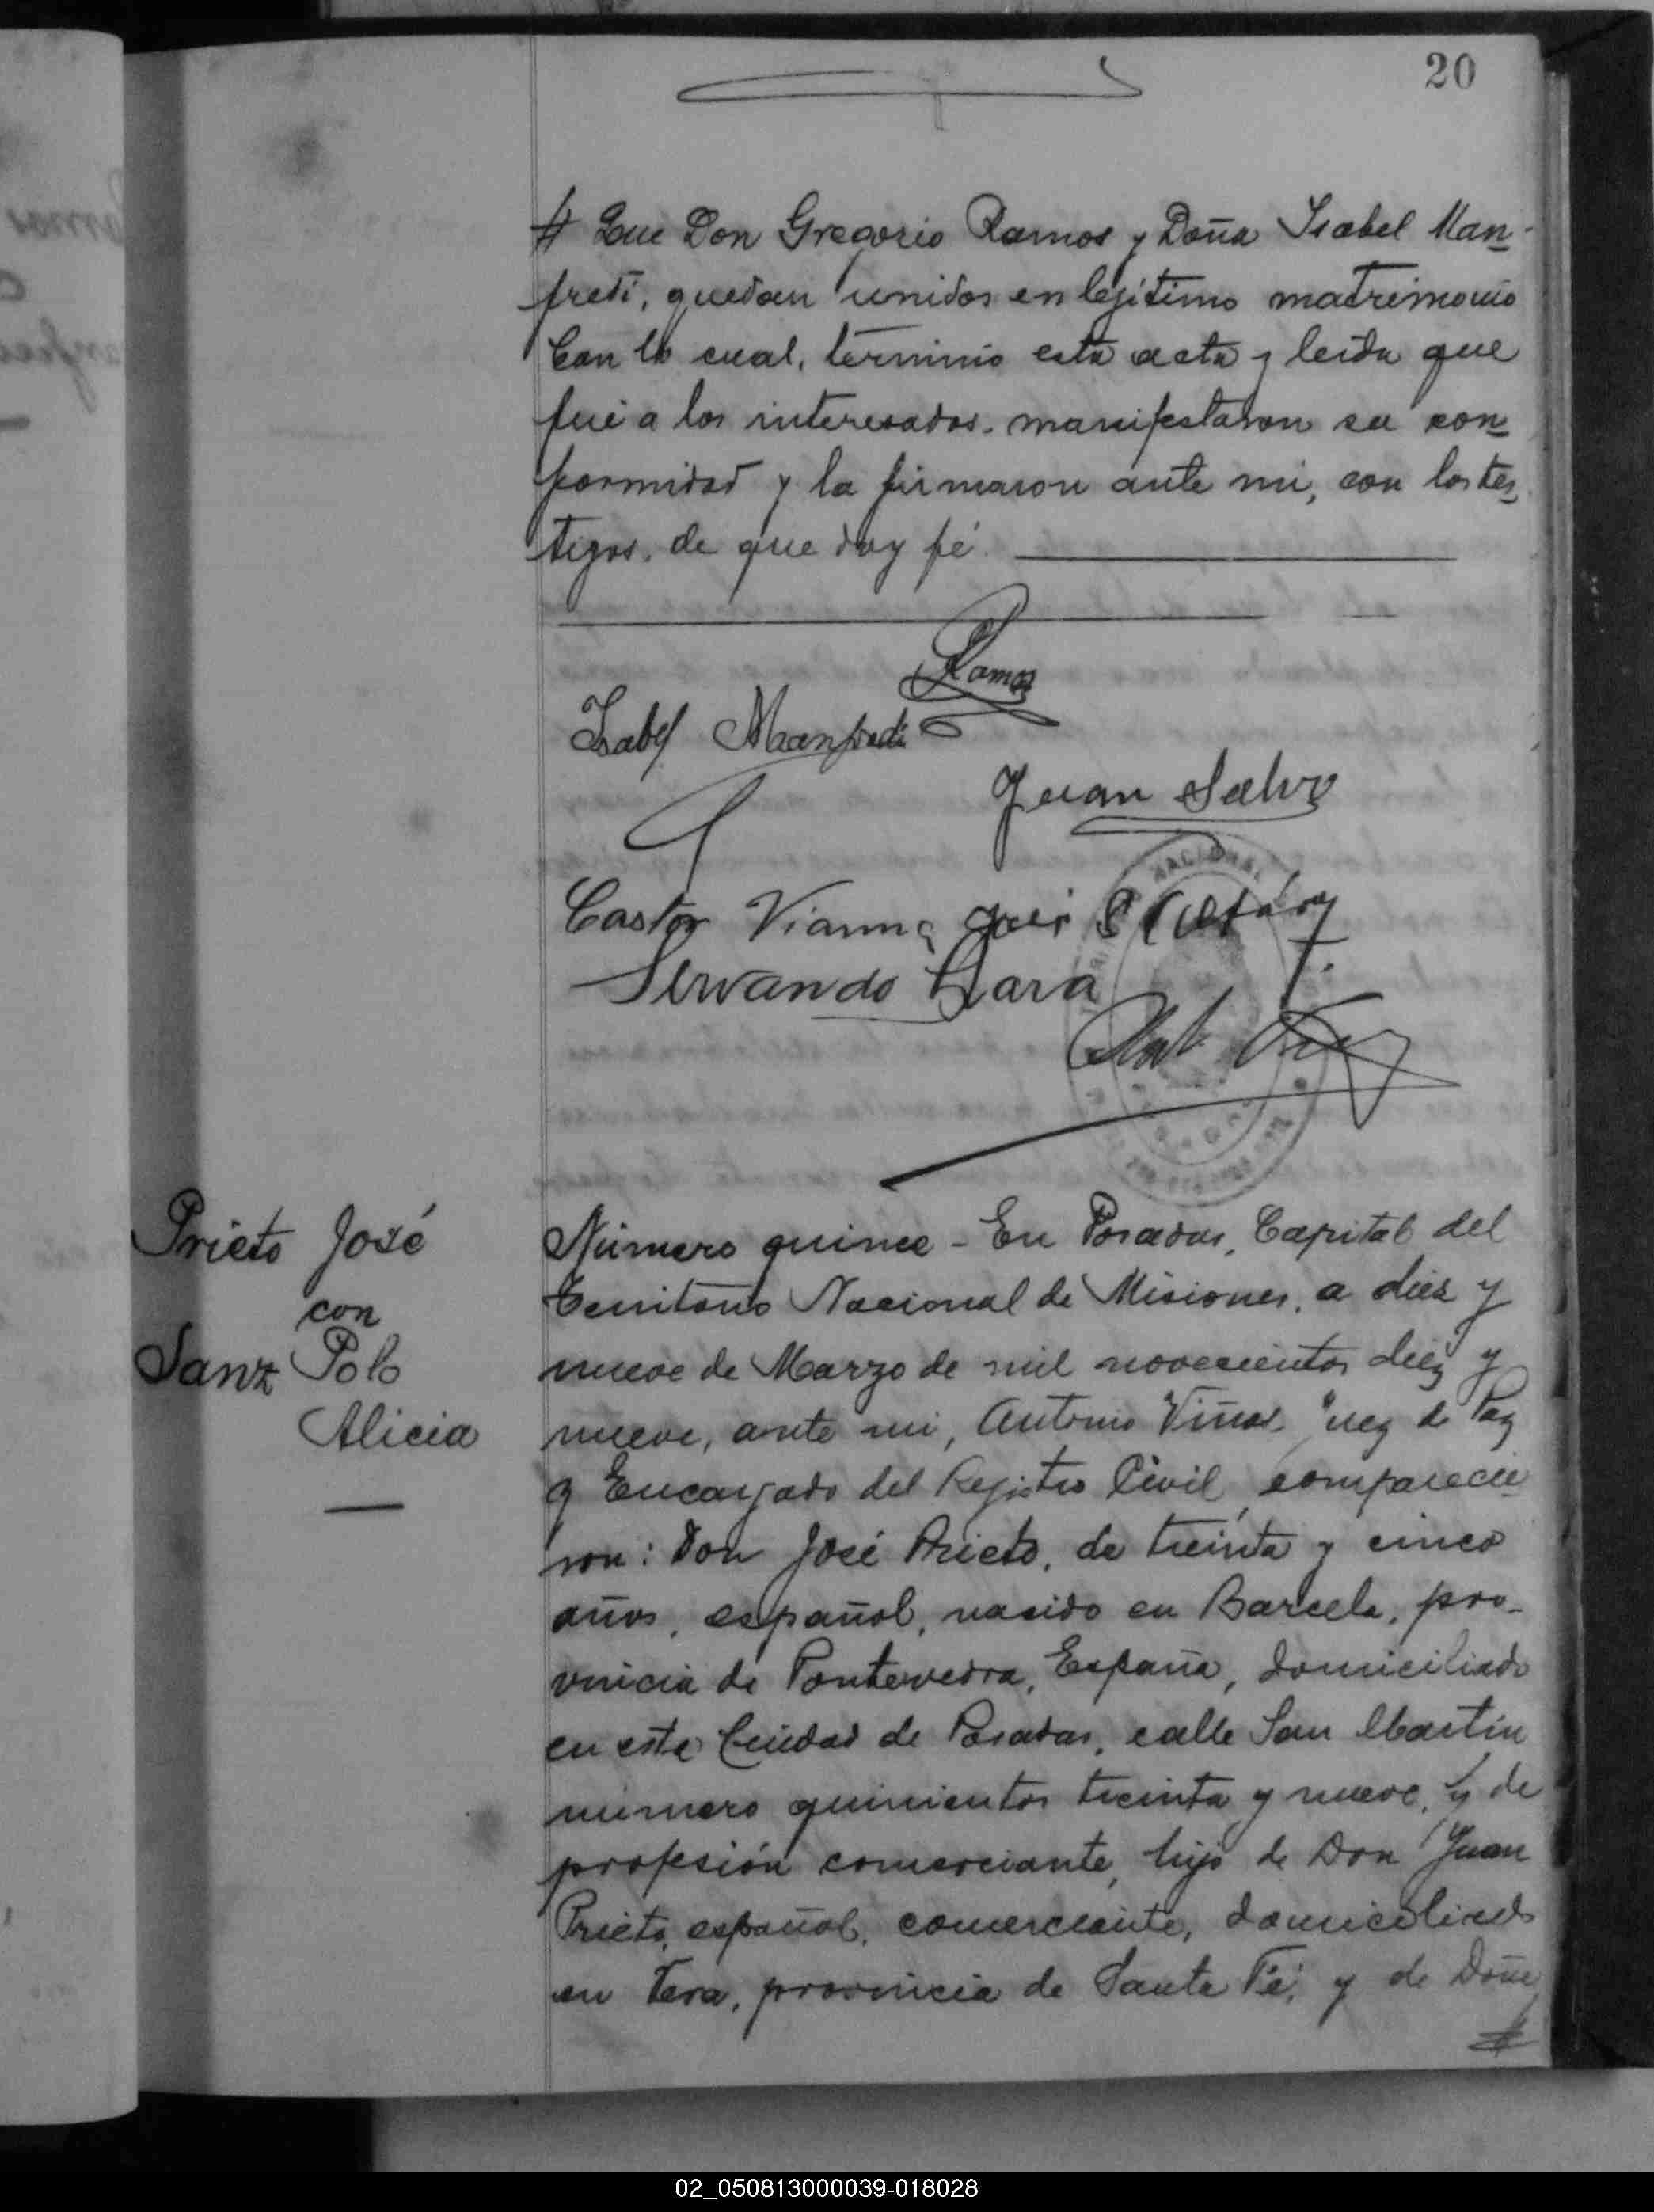 20
# Que Don Gregorio Ramos y Doña Isabel Man-
fredi, quedan unidos en legítimo matrimonio
Con lo cual, terminó esta acta y leída que
fué a los interesados, manifestaron su con-
formidad y la firmaron ante mi, con los tes-
tigos, de que doy fé.
Ramos
Isabel Manfredi
Juan Salvo
Castor Vianna
Servando Lara
NACIONAL
Prieto José
con
Sanz Polo
Alicia
Número quince - En Posadas, Capital del
Territorio Nacional de Misiones, a diez y
nueve de Marzo de mil novecientos diez y
nueve, ante mi, Antonio Viñas, Juez de Paz
y Encargado del Registro Civil, comparecie-
ron: Don José Prieto, de treinta y cinco
años, español, nacido en Barcela, pro-
vincia de Pontevedra, España, domiciliado
en esta Ciudad de Posadas, calle San Martín
número quinientos treinta y nueve, y de
profesión comerciante, hijo de Don Juan
Prieto, español, comerciante, domiciliado
en Vera, provincia de Santa Fé, y de Doña
#
02_050813000039-018028